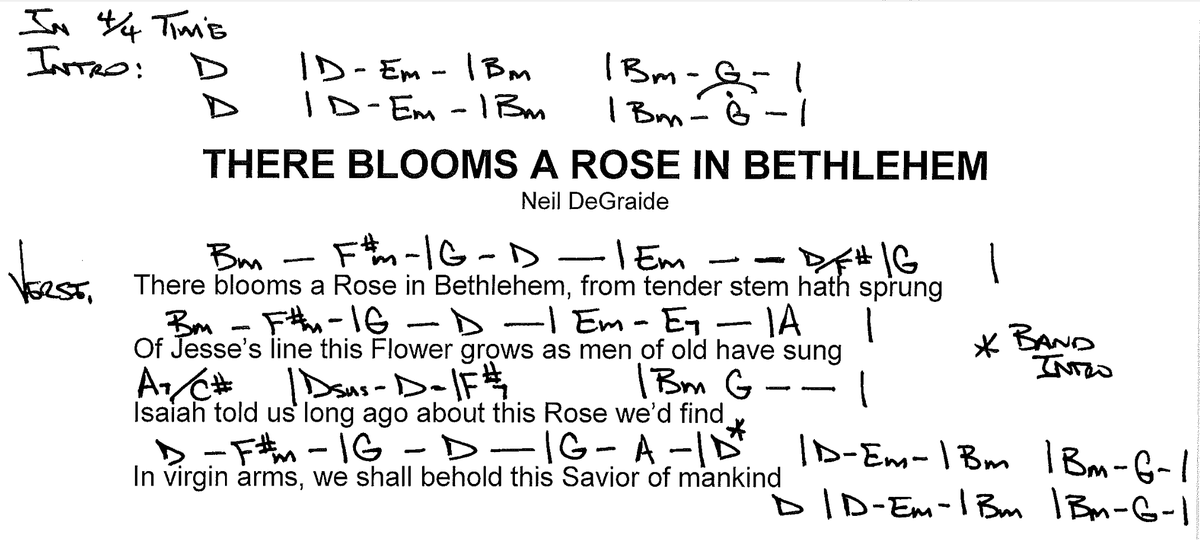 IN 4/4 TIME
INTRO: D | D - Em - | Bm | Bm - G - |
D | D - Em - | Bm | Bm - G - |
THERE BLOOMS A ROSE IN BETHLEHEM
Neil DeGraide
Bm - F#m - | G - D - | Em - - D/F# | G |
VERSE. There blooms a Rose in Bethlehem, from tender stem hath sprung
Bm - F#m - | G - D - | Em - E7 - | A |
Of Jesse's line this Flower grows as men of old have sung
* BAND INTRO
A7/C# | Dsus - D - | F#7 | Bm G - - |
Isaiah told us long ago about this Rose we'd find
D - F#m - | G - D - | G - A - | D* | D - Em - | Bm | Bm - G - |
In virgin arms, we shall behold this Savior of mankind
D | D - Em - | Bm | Bm - G - |